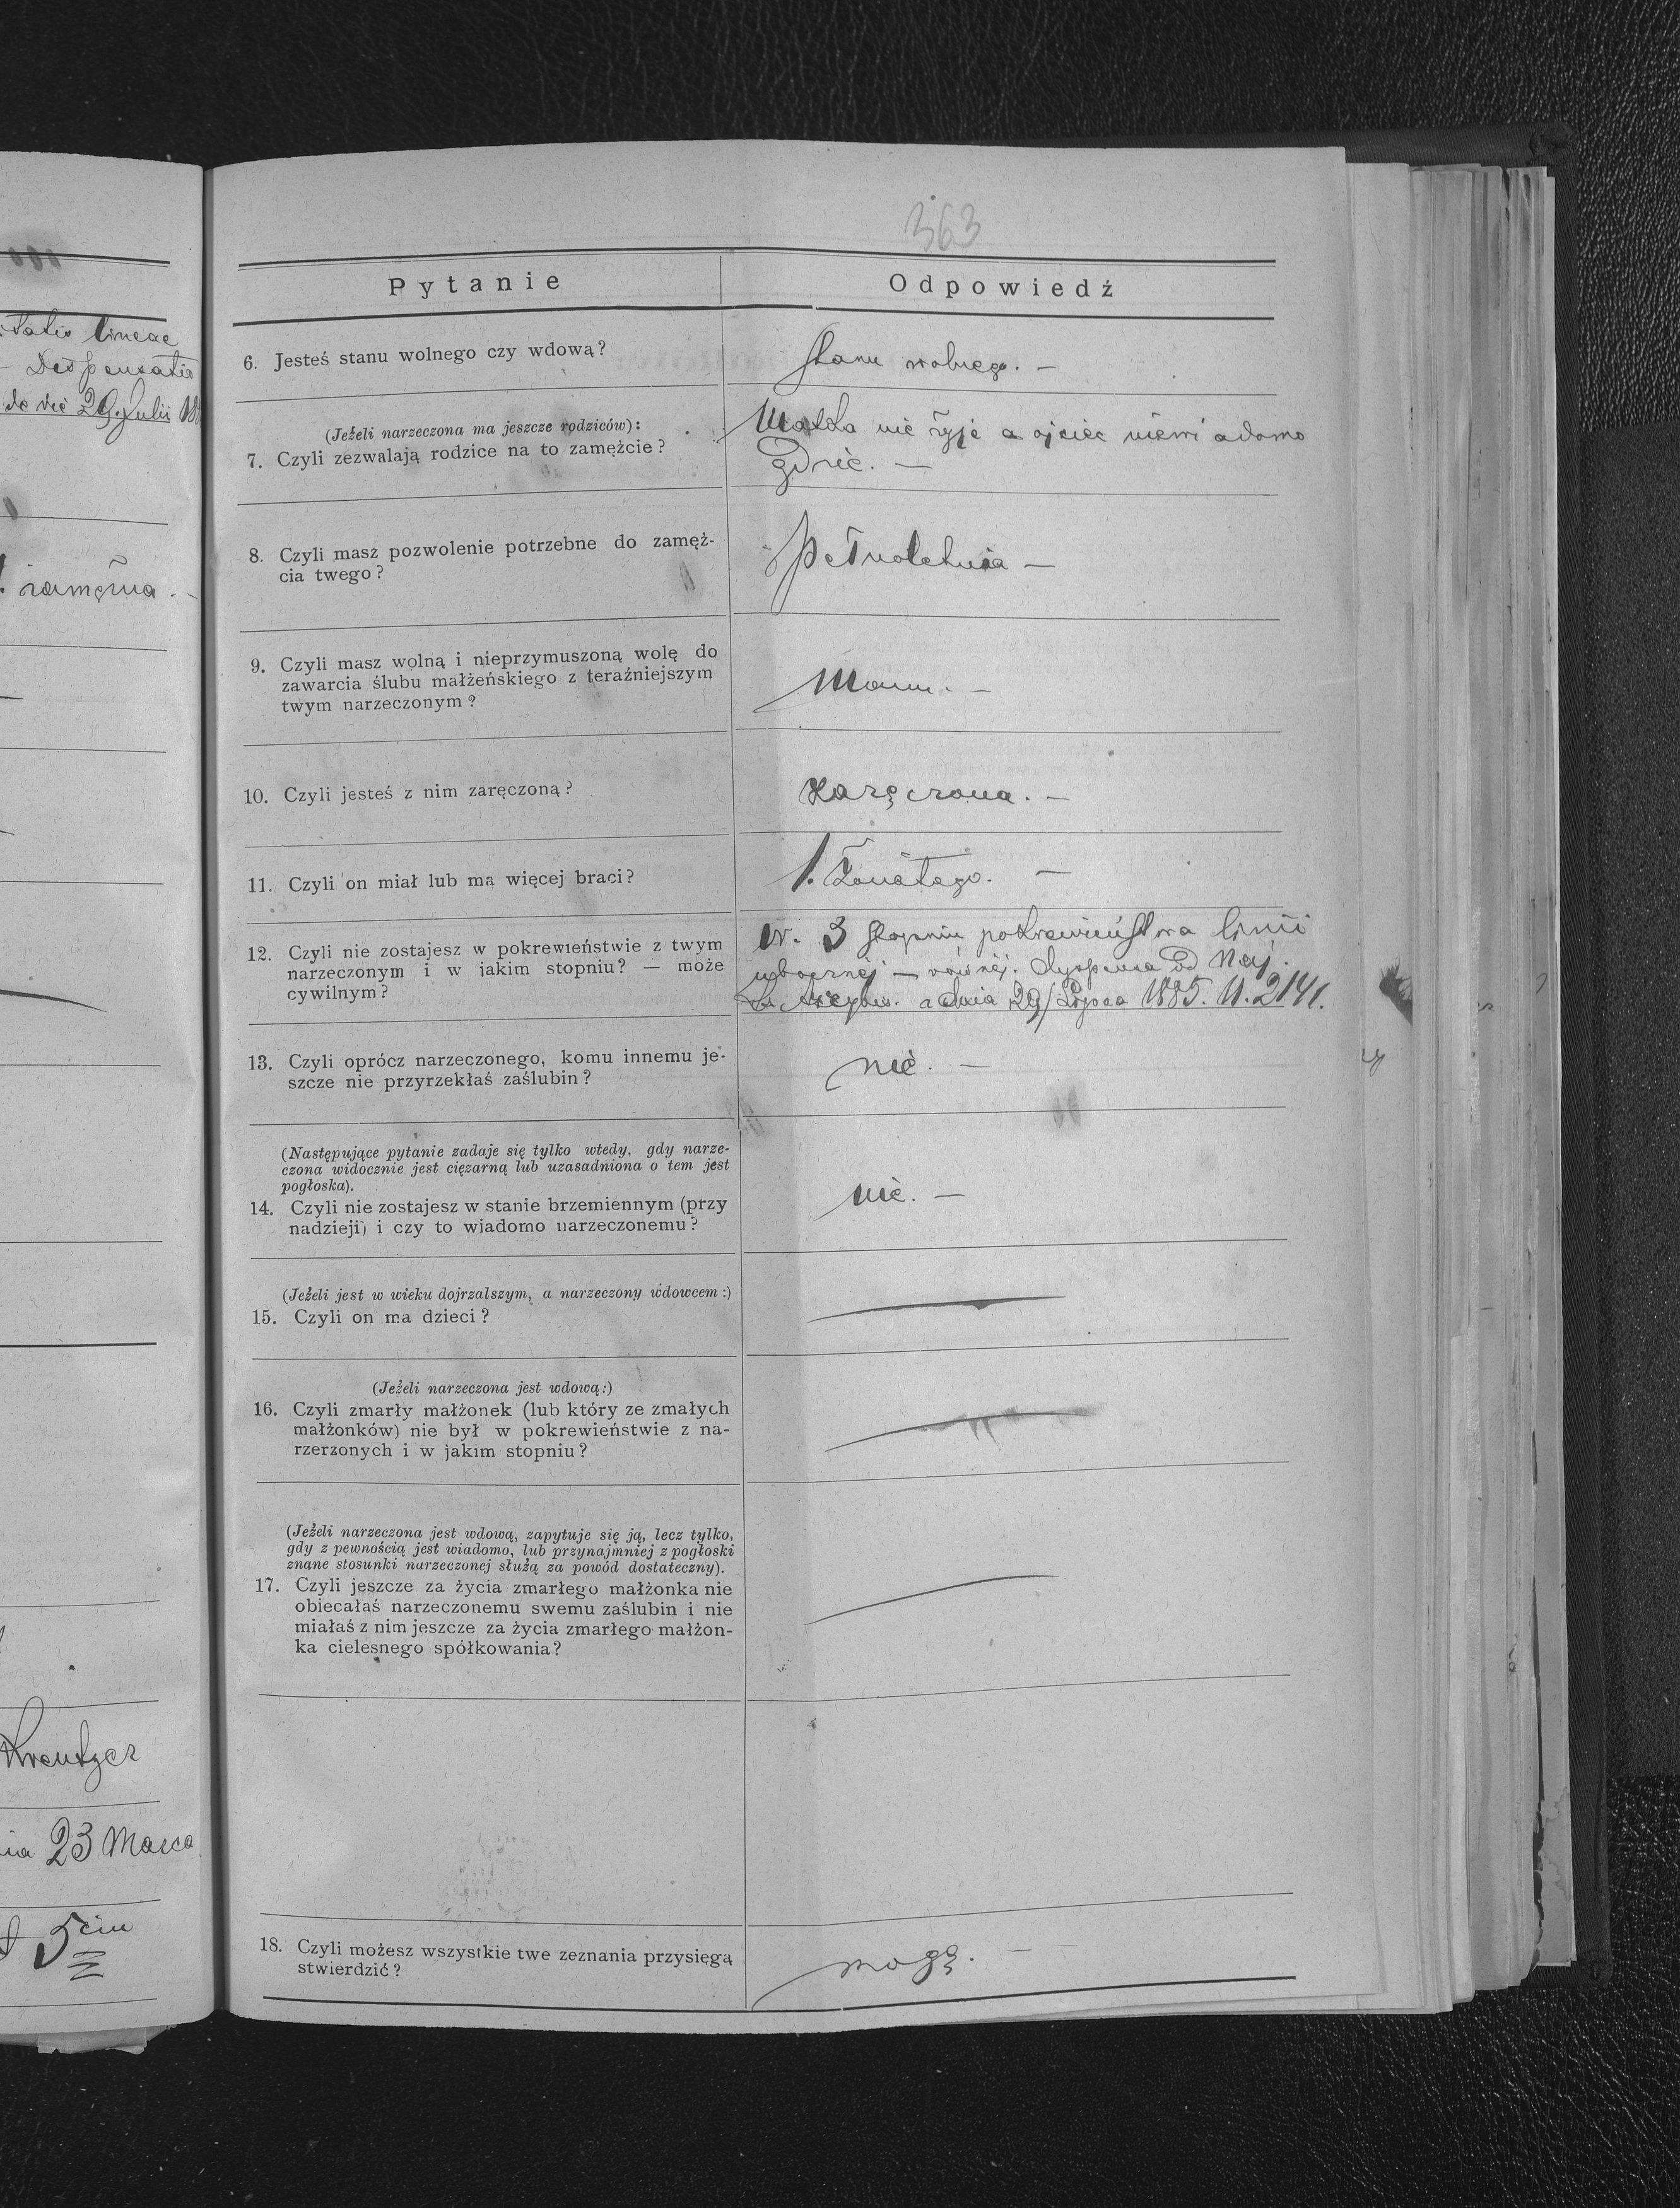 tatis lineae
Dispensatio
de die 29. Julii 18
zamężna. -
Kreutzer
nia 23 Marca
5ciu
363
Pytanie
Odpowiedź
6. Jesteś stanu wolnego czy wdową?
stanu wolnego. —
(Jeżeli narzeczona ma jeszcze rodziców):
7. Czyli zezwalają rodzice na to zamężcie?
Matka nie żyje a ojciec niewiadomo
gdzie. —
8. Czyli masz pozwolenie potrzebne do zamęż-
cia twego?
Pełnoletnia —
9. Czyli masz wolną i nieprzymuszoną wolę do
zawarcia ślubu małżeńskiego z teraźniejszym
twym narzeczonym?
Mam. —
10. Czyli jesteś z nim zaręczoną?
Zaręczona. —
11. Czyli on miał lub ma więcej braci?
1. Żonatego. —
12. Czyli nie zostajesz w pokrewieństwie z twym
narzeczonym i w jakim stopniu? — może
cywilnym?
w. 3 stopniu pokrewieństwa linii
ubocznéj — równéj. Dyspensa od Naj.
dnia 29/Lipca 1885. N. 2141.
13. Czyli oprócz narzeczonego, komu innemu je-
szcze nie przyrzekłaś zaślubin?
nie. —
(Następujące pytanie zadaje się tylko wtedy, gdy narze-
czona widocznie jest ciężarną lub uzasadniona o tem jest
pogłoska).
14. Czyli nie zostajesz w stanie brzemiennym (przy
nadzieji) i czy to wiadomo narzeczonemu?
nie. —
(Jeżeli jest w wieku dojrzalszym, a narzeczony wdowcem:)
15. Czyli on ma dzieci?
(Jeżeli narzeczona jest wdową:)
16. Czyli zmarły małżonek (lub który ze zmałych
małżonków) nie był w pokrewieństwie z na-
rzerzonych i w jakim stopniu?
(Jeżeli narzeczona jest wdową, zapytuje się ją, lecz tylko,
gdy z pewnością jest wiadomo, lub przynajmniej z pogłoski
znane stosunki narzeczonej służą za powód dostateczny).
17. Czyli jeszcze za życia zmarłego małżonka nie
obiecałaś narzeczonemu swemu zaślubin i nie
miałaś z nim jeszcze za życia zmarłego małżon-
ka cielesnego spółkowania?
18. Czyli możesz wszystkie twe zeznania przysięgą
stwierdzić?
mogę. —